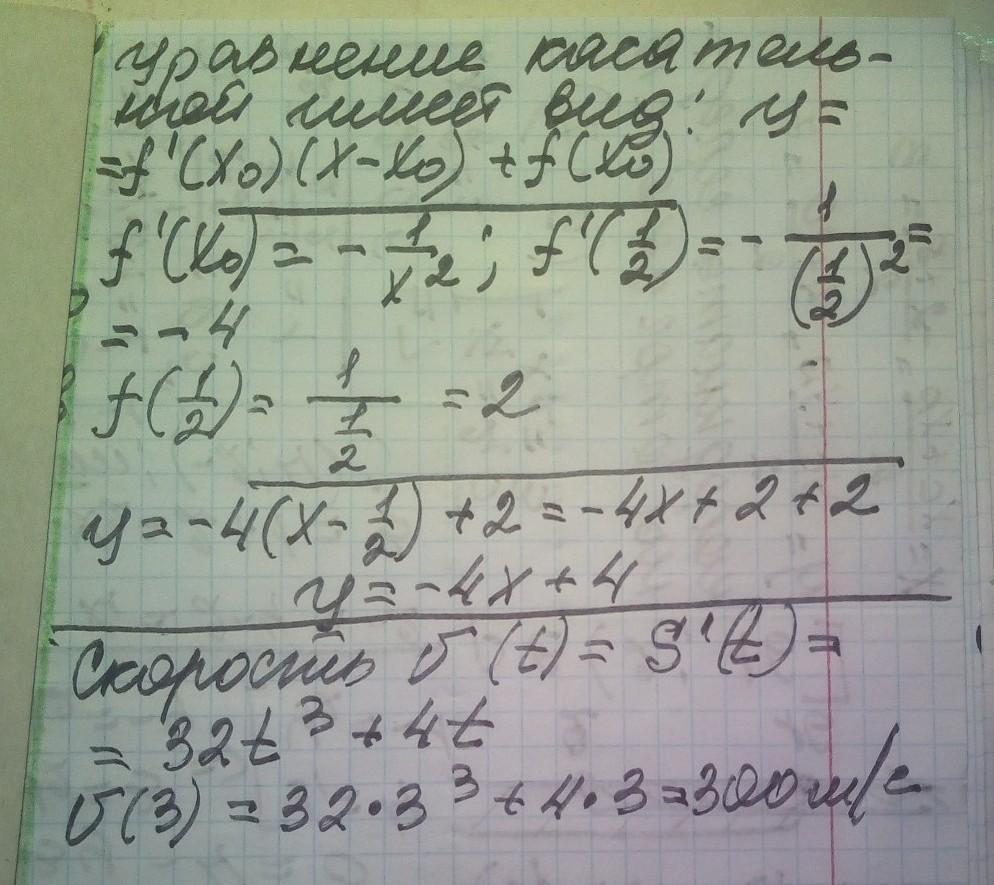 уравнение касатель-
ной имеет вид: y=
=f'(x₀)(x-x₀)+f(x₀)
f'(x₀) = - 1/x²; f'(1/2) = - 1/(1/2)² =
= -4
f(1/2) = 1/(1/2) = 2
y = -4(x - 1/2) + 2 = -4x + 2 + 2
y = -4x + 4
Скорость υ(t) = S'(t) =
= 32t³ + 4t
υ(3) = 32·3³ + 4·3 = 300 м/с